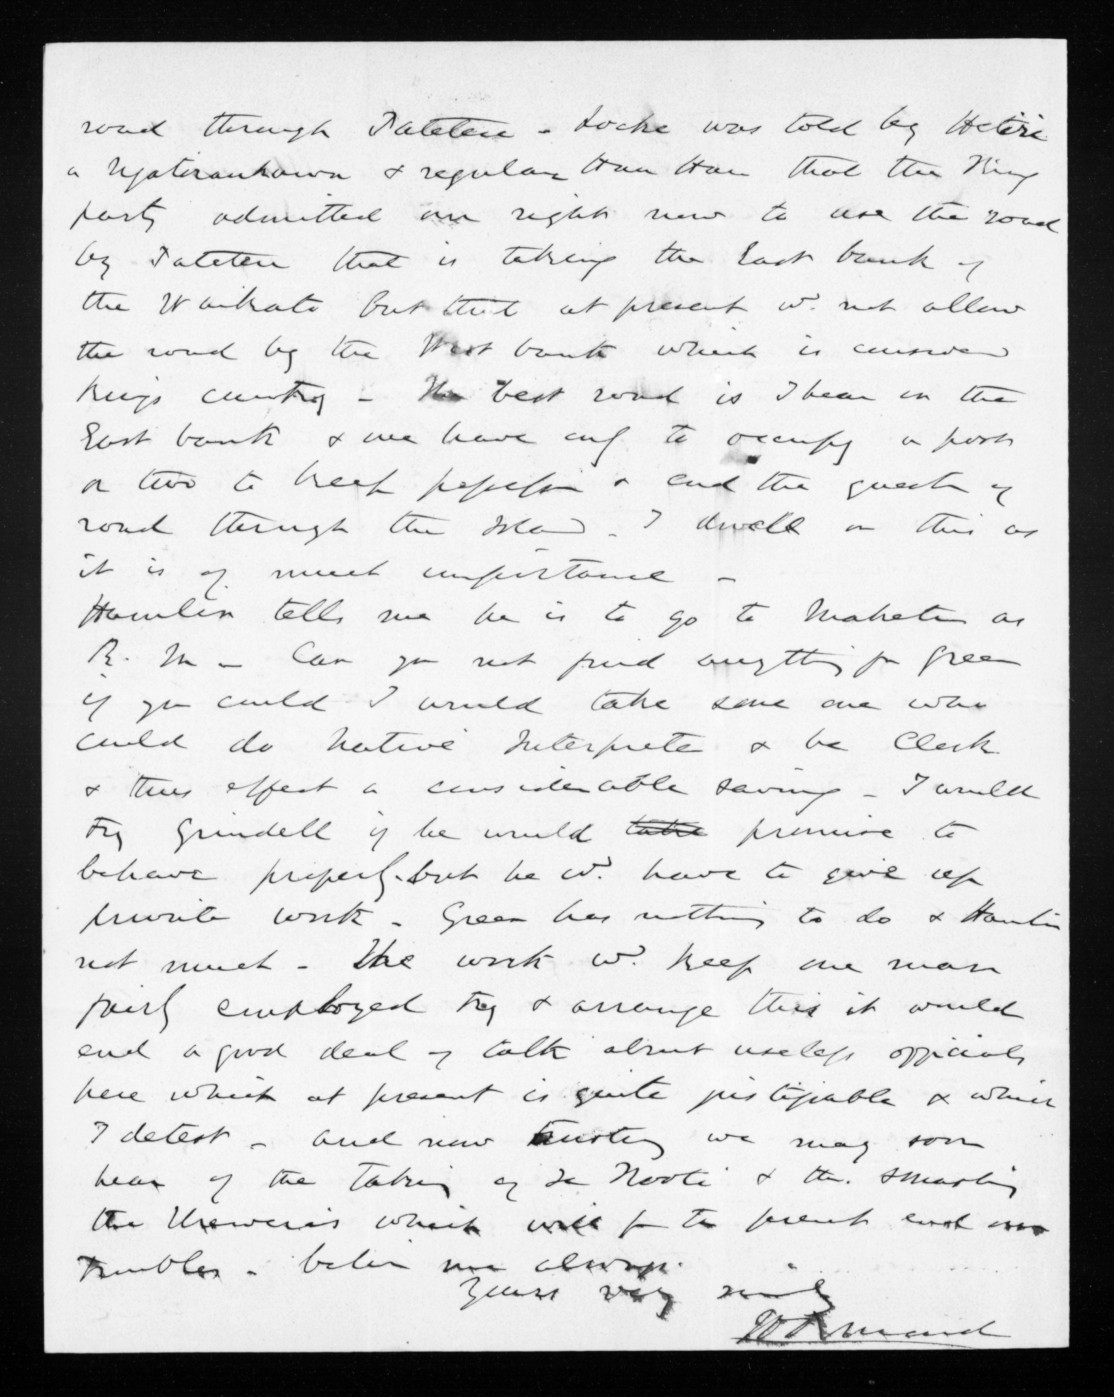 road through Patetere - Locke was told by Hetiri
a Ngatiraukawa & regular Hau Hau that the King
party admitted our right now to use the road
by Patetere that is taking the East bank of
the Waikato but that at present wd. not allow
the road by the West bank which is considered
Kings country - The best road is I hear on the
East bank & we have only to occupy a post
or two to keep possession & end the question of
road through the Island - I dwell on this as
it is of much importance -
Hamlin tells me he is to go to Maketu as
R. M - Can you not find anything for Green
if you could I would take some one who
could do Native Interpreter & be Clerk
& thus effect a considerable saving - I would
try Grindell if he would take promise to
behave properly. but he wd. have to give up
private work - Green has nothing to do & Hamlin
not much - The work wd. keep one man
fairly employed try & arrange this it would
end a good deal of talk about useless officials
here which at present is quite justifiable & which
I detest - and now trusting we may soon
hear of the taking of Te Kooti & the smashing
the Urewera's which will for the present end our
troubles - believe me always.
Yours very
JD Ormond